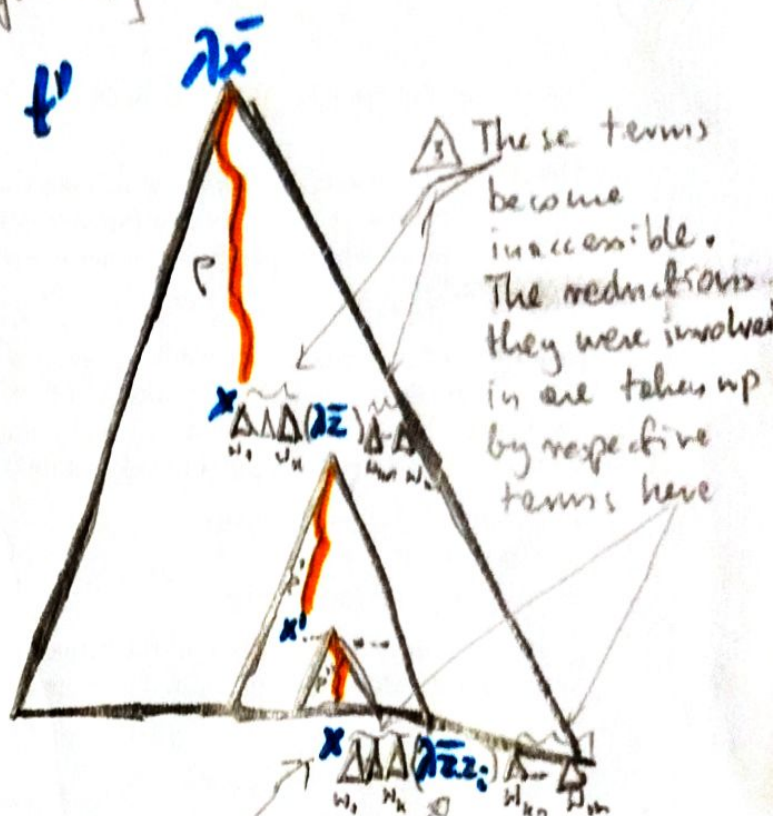 t'
λx̄
3 These terms
become
inaccessible.
The reductions
they were involved
in are taken up
by respective
terms here
ρ
x Δ Δ Δ (λz̄) Δ - Δ
w₁ wₖ
x'
x Δ Δ Δ (λz̄zᵢ) Δ - Δ
w₁ wₖ wₘ